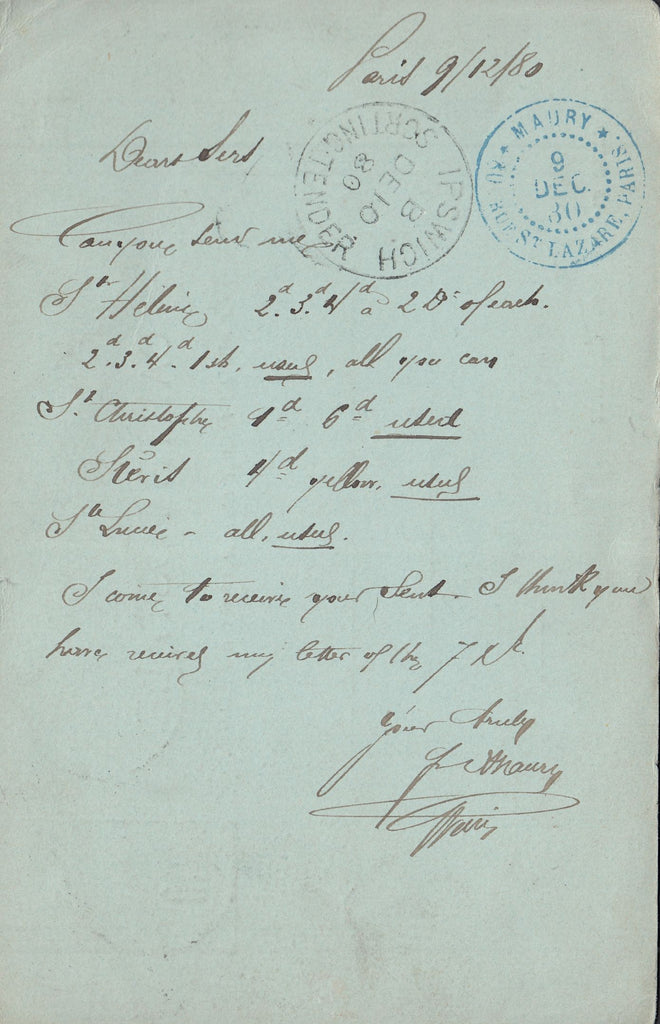 Paris 9/12/80
MAURY
9
DEC.
80
RUE ST LAZARE, PARIS
IPSWICH
SORTING TENDER
B
DE 10
80
Dears Sers
Can you send me
Ste Helene 2d. 3d. 4d a 2 Dz of each.
2d. 3d. 4d. 1sh. used, all you can
St Christophe 1d 6d used
4d yellow, used
Ste Lucie - all, used.
I come to receive your sent. I think you
have received my letter of the 7
your truly
Maury
Paris